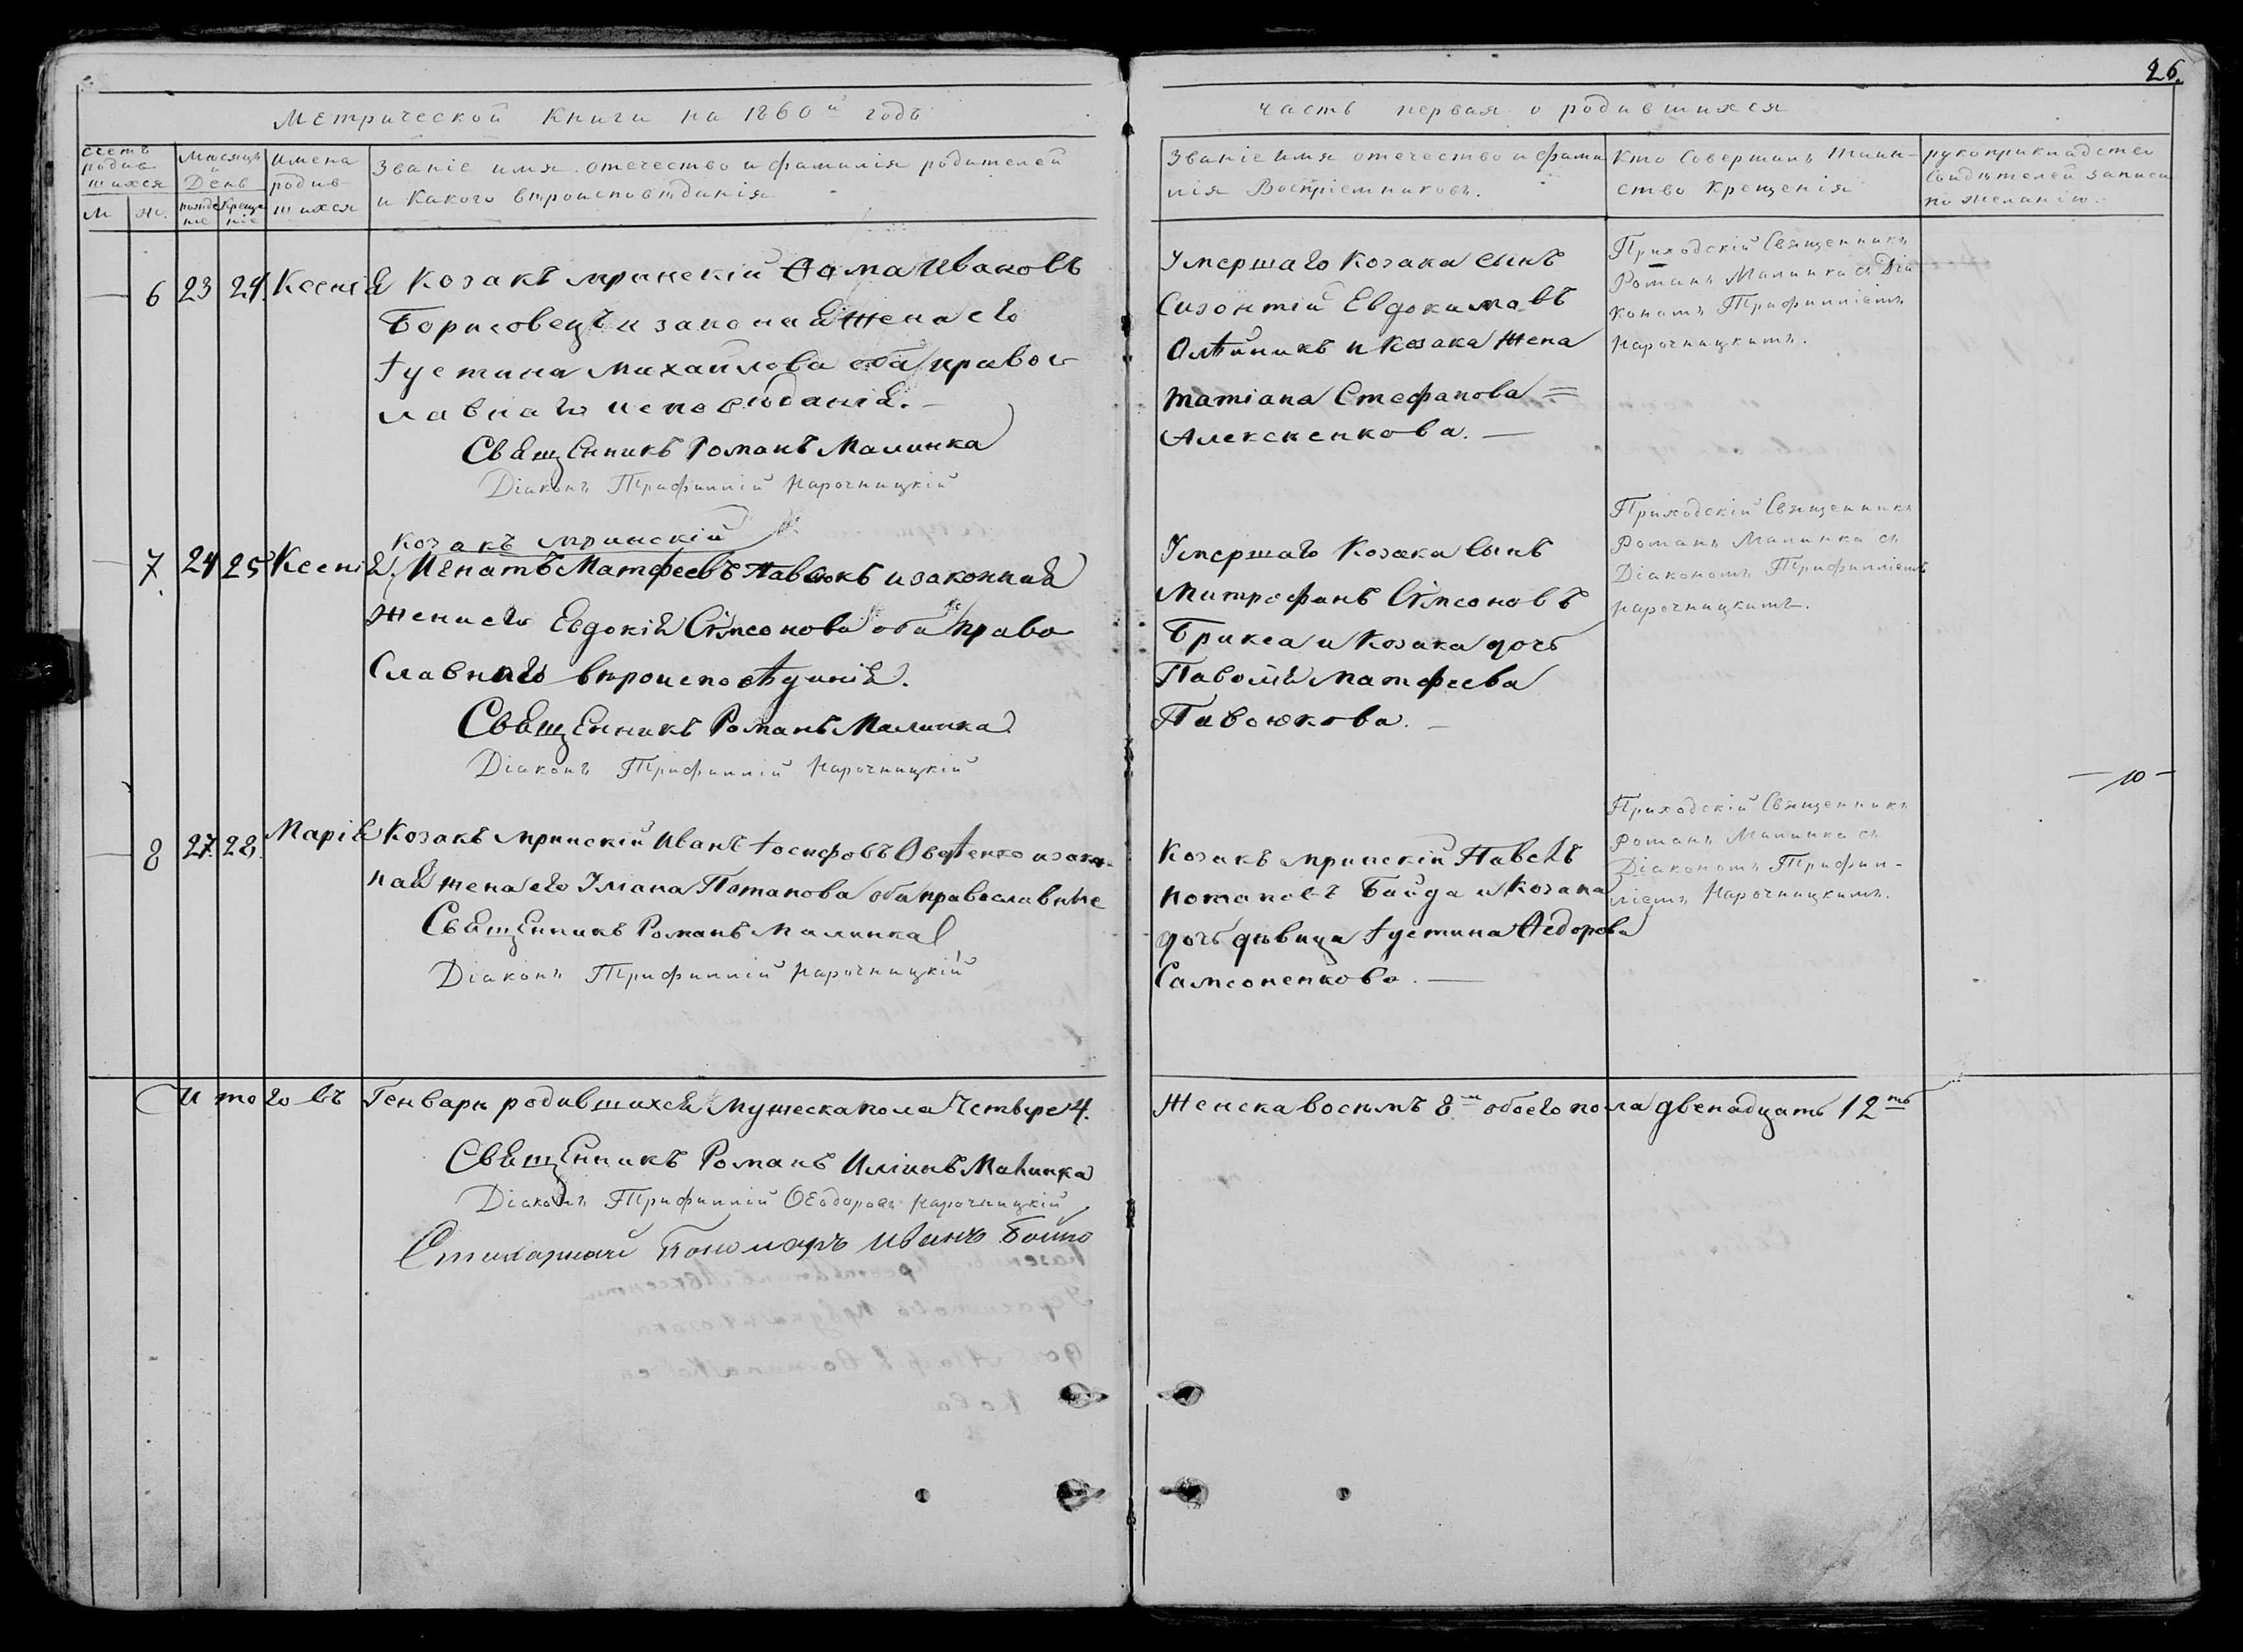 26.
Метрической Книги на 1860й годъ
часть первая о родившихся
счетъ родив шихся
Мѣсяцъ и День
Имена родив шихся
М
Ж.
рожде ніе
Креще ніе
Званіе имя отечество и фамилія родителей
и Какого вѣроисповѣданія
Званіе имя отечество и фами
лія Воспріемниковъ.
Кто Совершалъ Таин-
ство Крещенія
рукоприкладство
Свидѣтелей записи
по желанію.
6 23 24. Ксенія
Козакъ мринскій Ѳома Ивановъ
Борисовецъ и законная жена его
Іустина Михайлова оба правос
лавнаго исповѣданія.
Священникъ Романъ Малинка
Діаконъ Трифиллій Нарочницкій
Умершаго Козака сынъ
Сизонтій Евдокимовъ
Олѣйникъ и Козака жена
татіана Стефанова =
Алексеенкова. —
Приходскій Священникъ
Романъ Малинка съ Діа
кономъ Трифилліемъ
Нарочницкимъ.
7. 24 25 Ксенія
Козакъ мринскій
Игнатъ Матфеевъ Павлюкъ и законная
жена его Евдокія Сѵмсонова оба право
Славнаго вѣроисповѣданія.
Священникъ Романъ Малинка
Діаконъ Трифиллій Нарочницкій
Умершаго Козака Сынъ
Митрофанъ Сѵмсоновъ
Брикса и Козака дочь
Матфеева
Павлюкова. —
Приходскій Священникъ
Романъ Малинка съ
Діакономъ Трифилліемъ
Нарочницкимъ.
— 10 —
8 27. 28. Марія
Козакъ мринскій Иванъ Іосифовъ Овдѣенко и закон
ная жена его Уліана Потапова оба православные
Священникъ Романъ Малинка
Діаконъ Трифиллій Нарочницкій
Козакъ мринскій Павелъ
Потаповъ Байда и Козака
дочь дѣвица Іустина Ѳедорова
Самсоненкова. —
Приходскій Священникъ
Романъ Малинка съ
Діакономъ Трифил-
ліемъ Нарочницкимъ.
Итого въ Генварѣ родившихся Мужеска пола Четыре 4.
Женска восьмъ 8.м обоего пола двенадцать 12ть
Священникъ Романъ Иліинъ Малинка
Діаконъ Трифиллій Ѳеодоровъ Нарочницкій
Стихарный Пономарь Иванъ Бойко